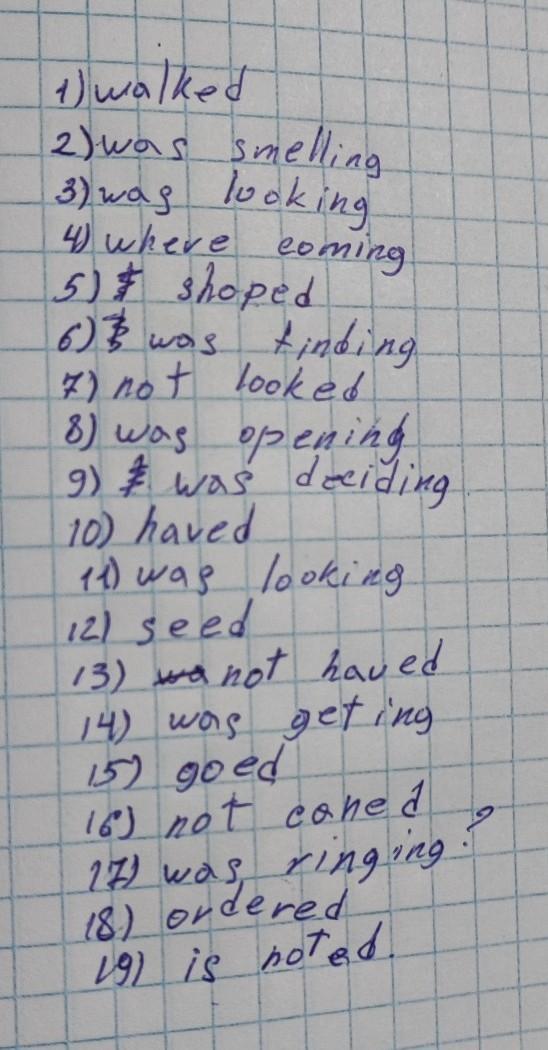 1) walked
2) was smelling
3) was looking
4) where coming
5) shoped
6) was finding
7) not looked
8) was opening
9) was deciding
10) haved
11) was looking
12) seed
13) not haved
14) was geting
15) goed
16) not caned
17) was ringing?
18) ordered
19) is noted.